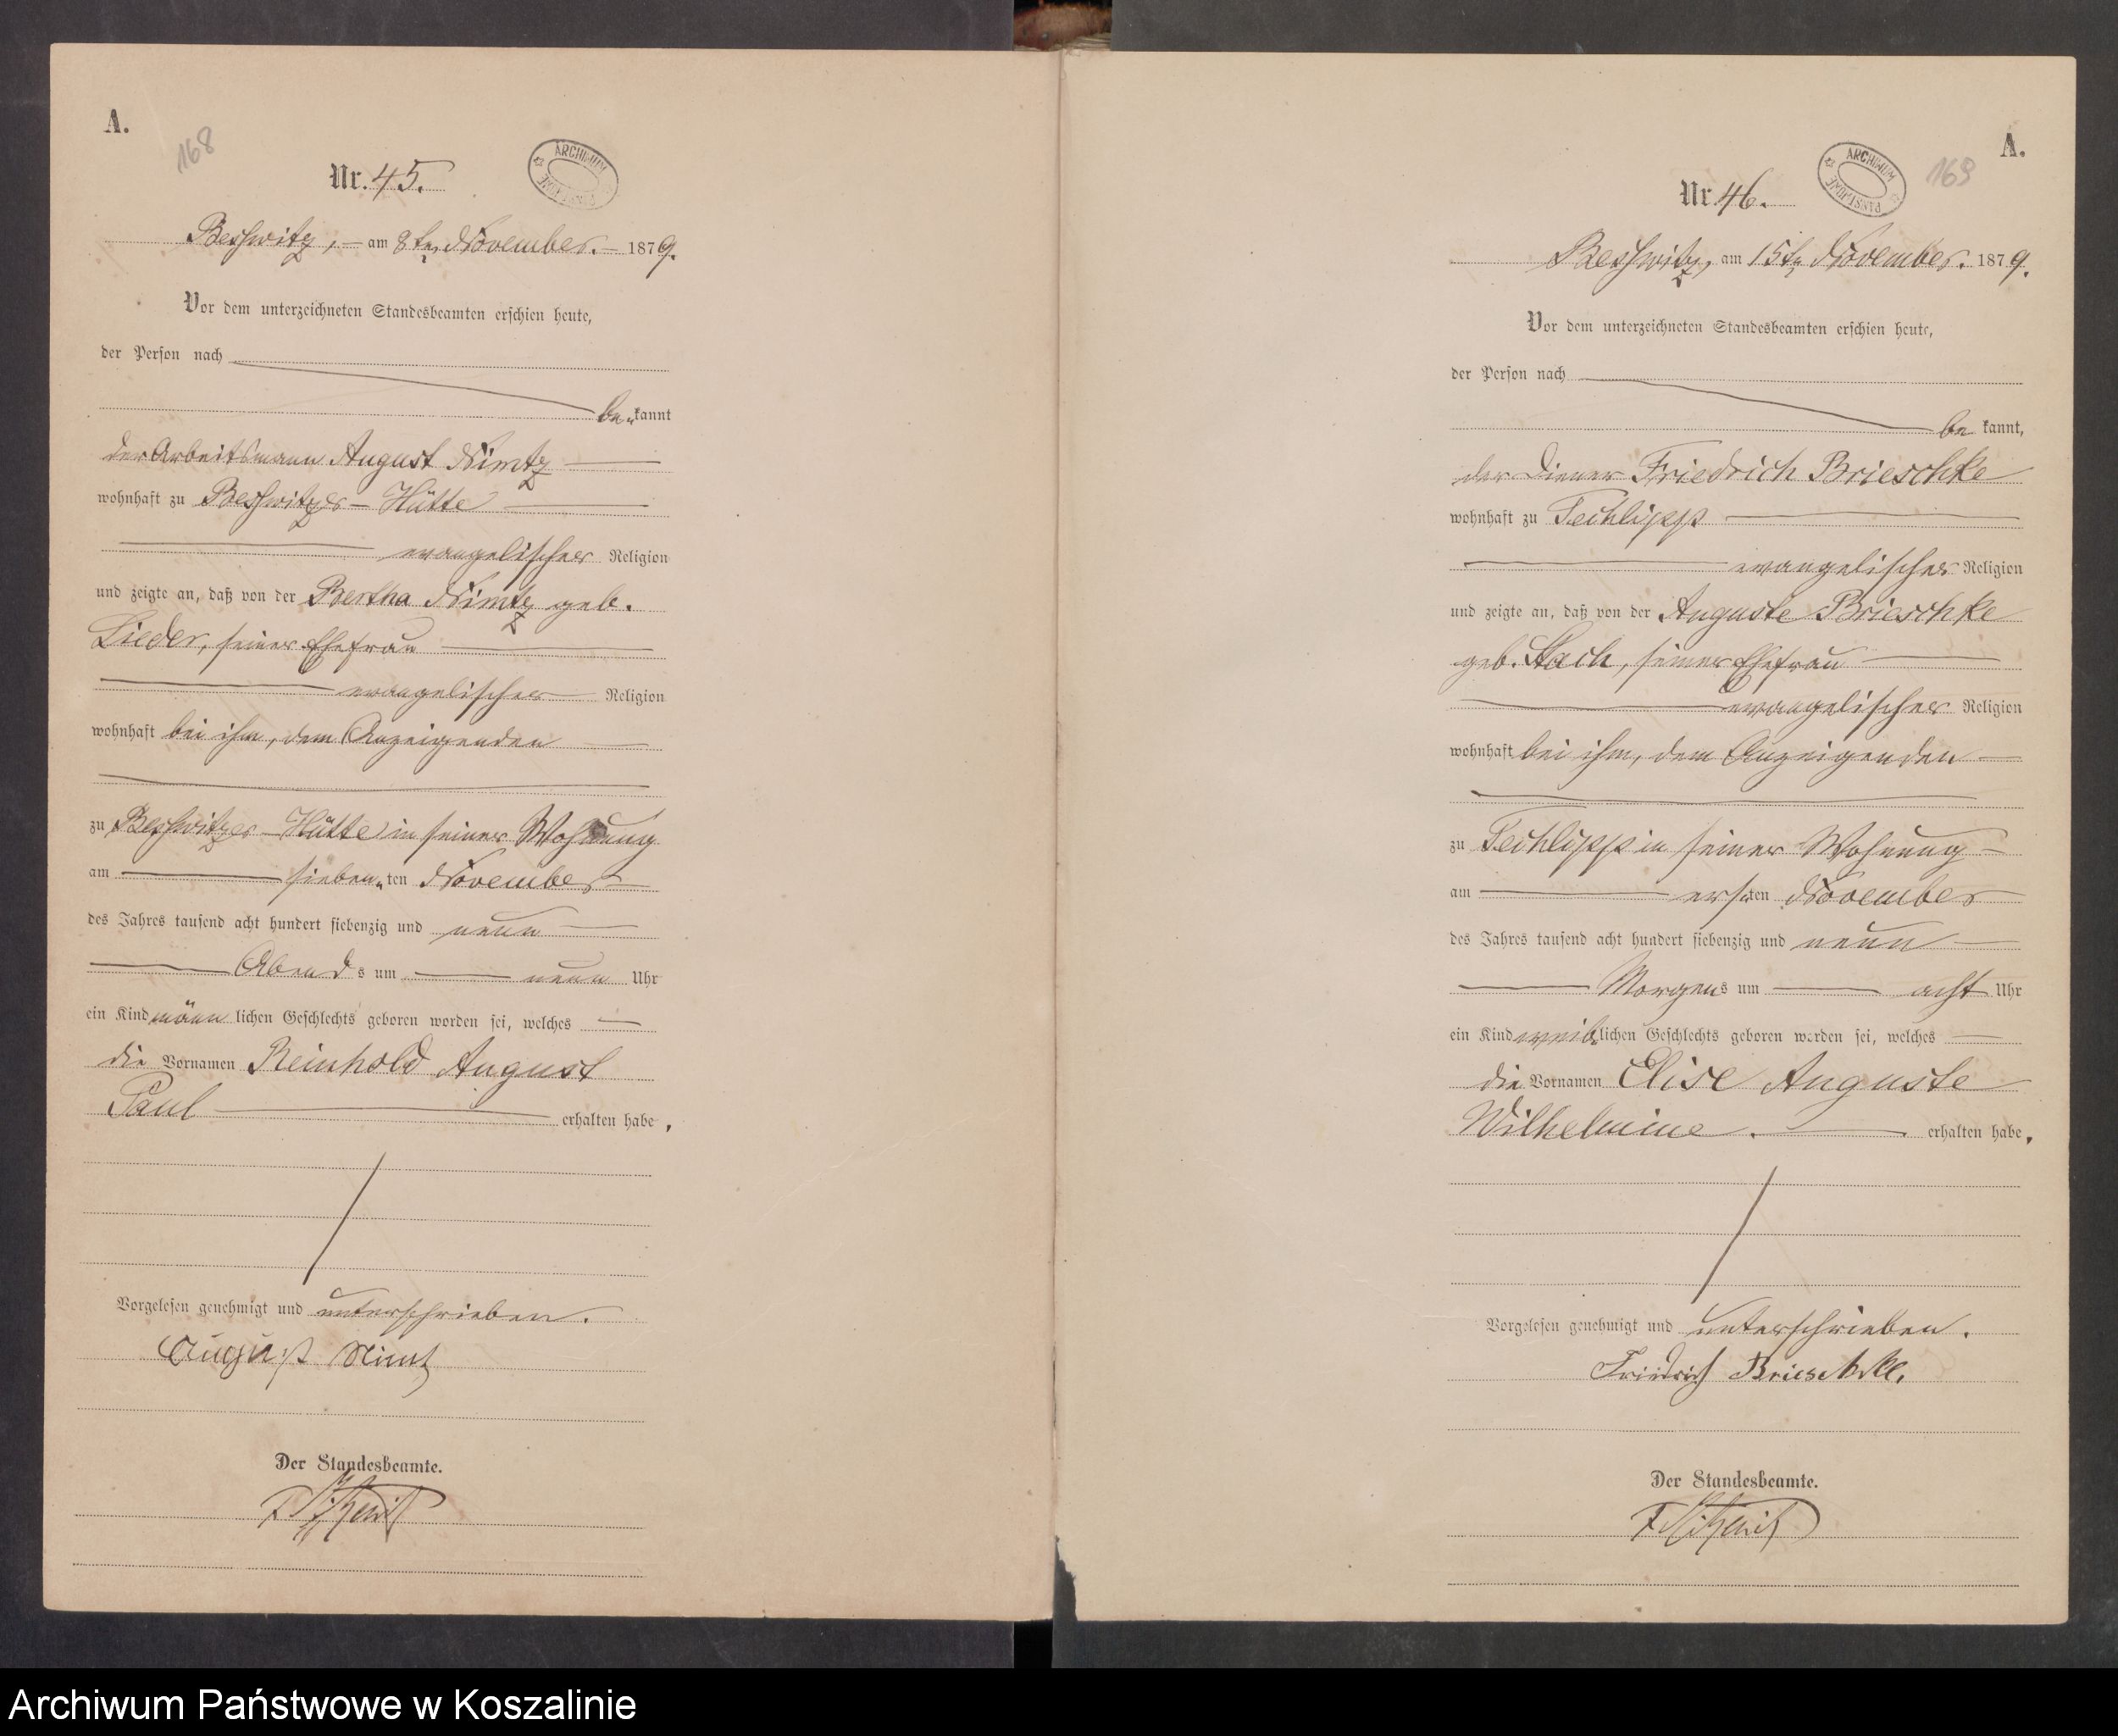 A.
168
Nr. 45.
ARCHIWUM PAŃSTWOWE
Beßwitz, am 8ten November. 1879.
Vor dem unterzeichneten Standesbeamten erschien heute,
der Person nach
be kannt
der Arbeitsmann August Nimtz
wohnhaft zu Beßwitzer-Hütte
evangelischer Religion
und zeigte an, daß von der Bertha Nimtz geb.
Lieder, seiner Ehefrau
evangelischer Religion
wohnhaft bei ihm, dem Anzeigenden
zu Beßwitzer-Hütte in seiner Wohnung
am sieben ten November
des Jahres tausend acht hundert siebenzig und neun
Abends um neun Uhr
ein Kind männ lichen Geschlechts geboren worden sei, welches
die Vornamen Reinhold August
Paul erhalten habe,
Vorgelesen genehmigt und unterschrieben.
August Nimtz
Der Standesbeamte.
A.
169
Nr 46.
ARCHIWUM PAŃSTWOWE
Beßwitz, am 15ten November. 1879.
Vor dem unterzeichneten Standesbeamten erschien heute,
der Person nach
be kannt,
der Diener Friedrich Brieschke
wohnhaft zu Techlipp
evangelischer Religion
und zeigte an, daß von der Auguste Brieschke
geb. Stach, seiner Ehefrau
evangelischer Religion
wohnhaft bei ihm, dem Anzeigenden
zu Techlipp in seiner Wohnung
am ersten November
des Jahres tausend acht hundert siebenzig und neun
Morgens um acht Uhr
ein Kind weib lichen Geschlechts geboren worden sei, welches
die Vornamen Elise Auguste
Wilhelmine. erhalten habe,
Vorgelesen genehmigt und unterschrieben.
Friedrich Brieschke,
Der Standesbeamte.
Archiwum Państwowe w Koszalinie